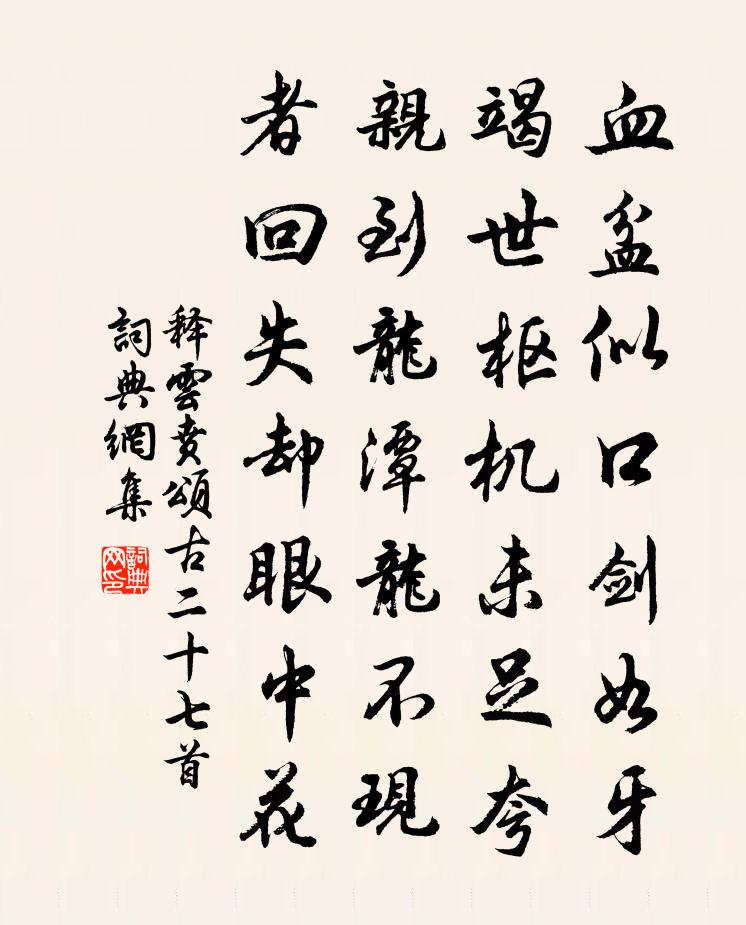 血盆似口剑如牙
竭世枢机未足夸
親到龍潭龍不現
者回失却眼中花
释雲賁頌古二十七首
詞典網集
詞典网印